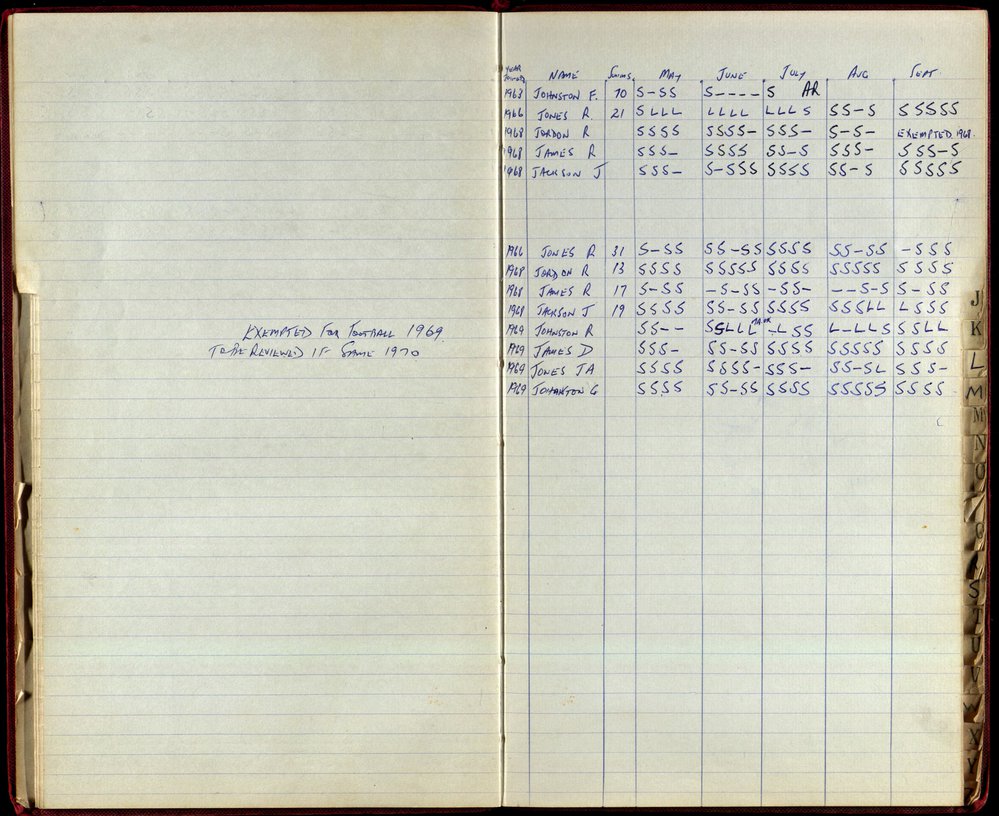 EXEMPTED FOR FOOTBALL 1969.
TO BE REVIEWED IF SAME 1970
YEAR JOINED NAME Swims MAY JUNE JULY AUG SEPT.
1963 JOHNSTON F. 70 S-SS S---- S AR
1966 JONES R. 21 SLLL LLLL LLLS SS-S SSSSS
1968 JORDON R SSSS SSSS- SSS- S-S- EXEMPTED 1968.
1968 JAMES R SSS- SSSS SS-S SSS- SSS-S
1968 JACKSON J SSS- S-SSS SSSS SS-S SSSSS
1966 JONES R 31 S-SS SS-SS SSSS SS-SS -SSS
1968 JORDON R 13 SSSS SSSSS SSSS SSSSS SSSS
1968 JAMES R 17 S-SS -S-SS -SS- --S-S S-SS
1968 JACKSON J 19 SSSS SS-SS SSSS SSSLL LSSS
1969 JOHNSTON R SS-- SSLLL -LSS L-LLS SSLL
1969 JAMES D SSS- SS-SS SSSS SSSSS SSSS
1969 JONES JA SSSS SSSS- SSS- SS-SL SSS-
1969 JOHNSTON G SSSS SS-SS SSSS SSSSS SSSS
J
K
L
M
M
N
O
Q
S
T
U
V
W
X
Y